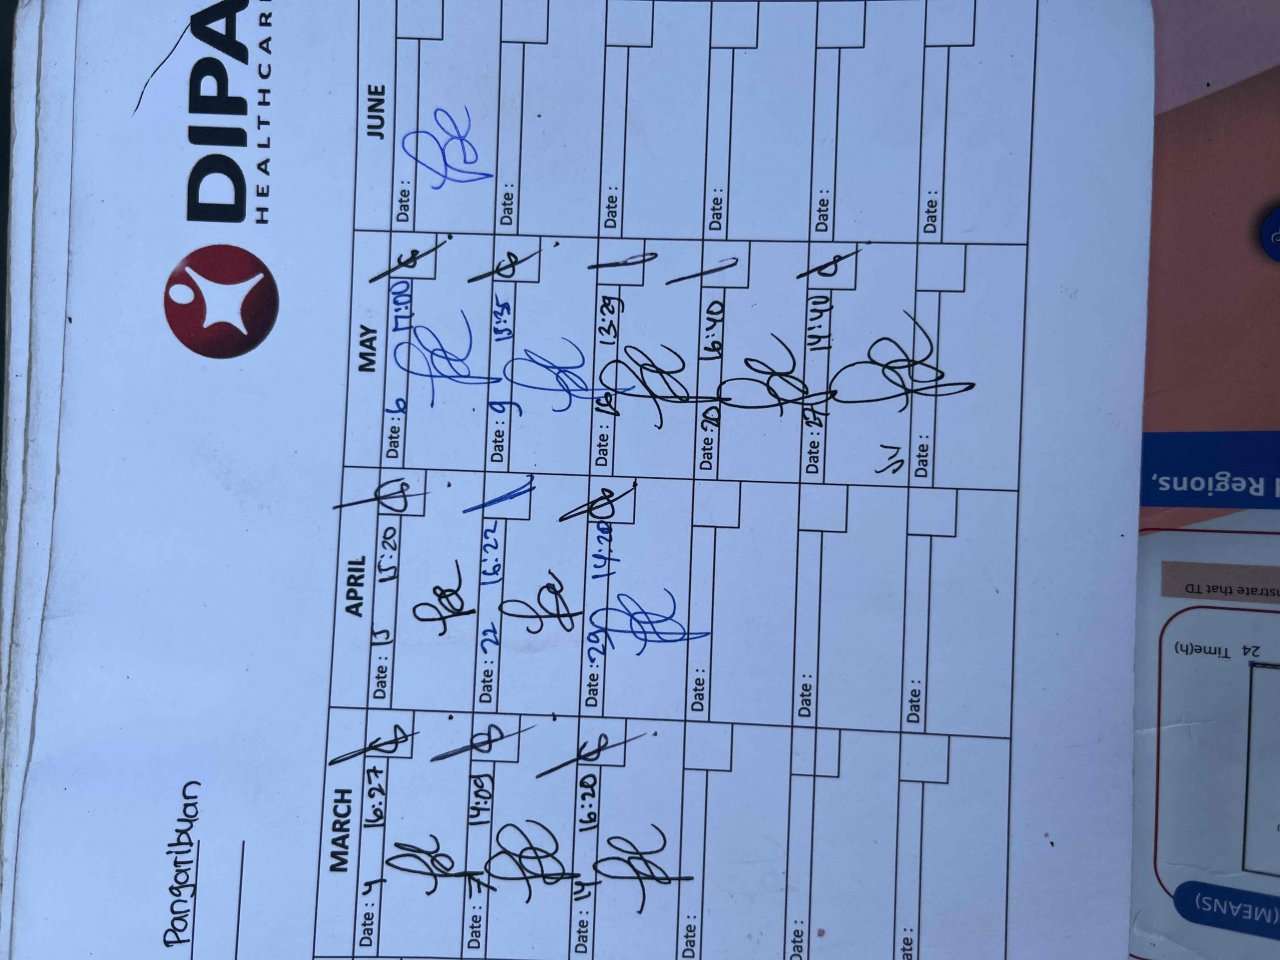 DIPA
HEALTHCAR
Pangaribuan
MARCH APRIL MAY JUNE
Date: 4 16:27 Date: 15 15:20 Date: 6 17:00 Date:
Date: 7 14:09 Date: 22 16:22 Date: 9 15:35 Date:
Date: 14 16:20 Date: 29 14:20 Date: 16 13:29 Date:
Date: Date: Date: 20 16:40 Date:
Date: Date: Date: 27 14:40 Date:
ate: Date: Date: Date:
Regions,
strate that TD
24 Time(h)
(MEANS)